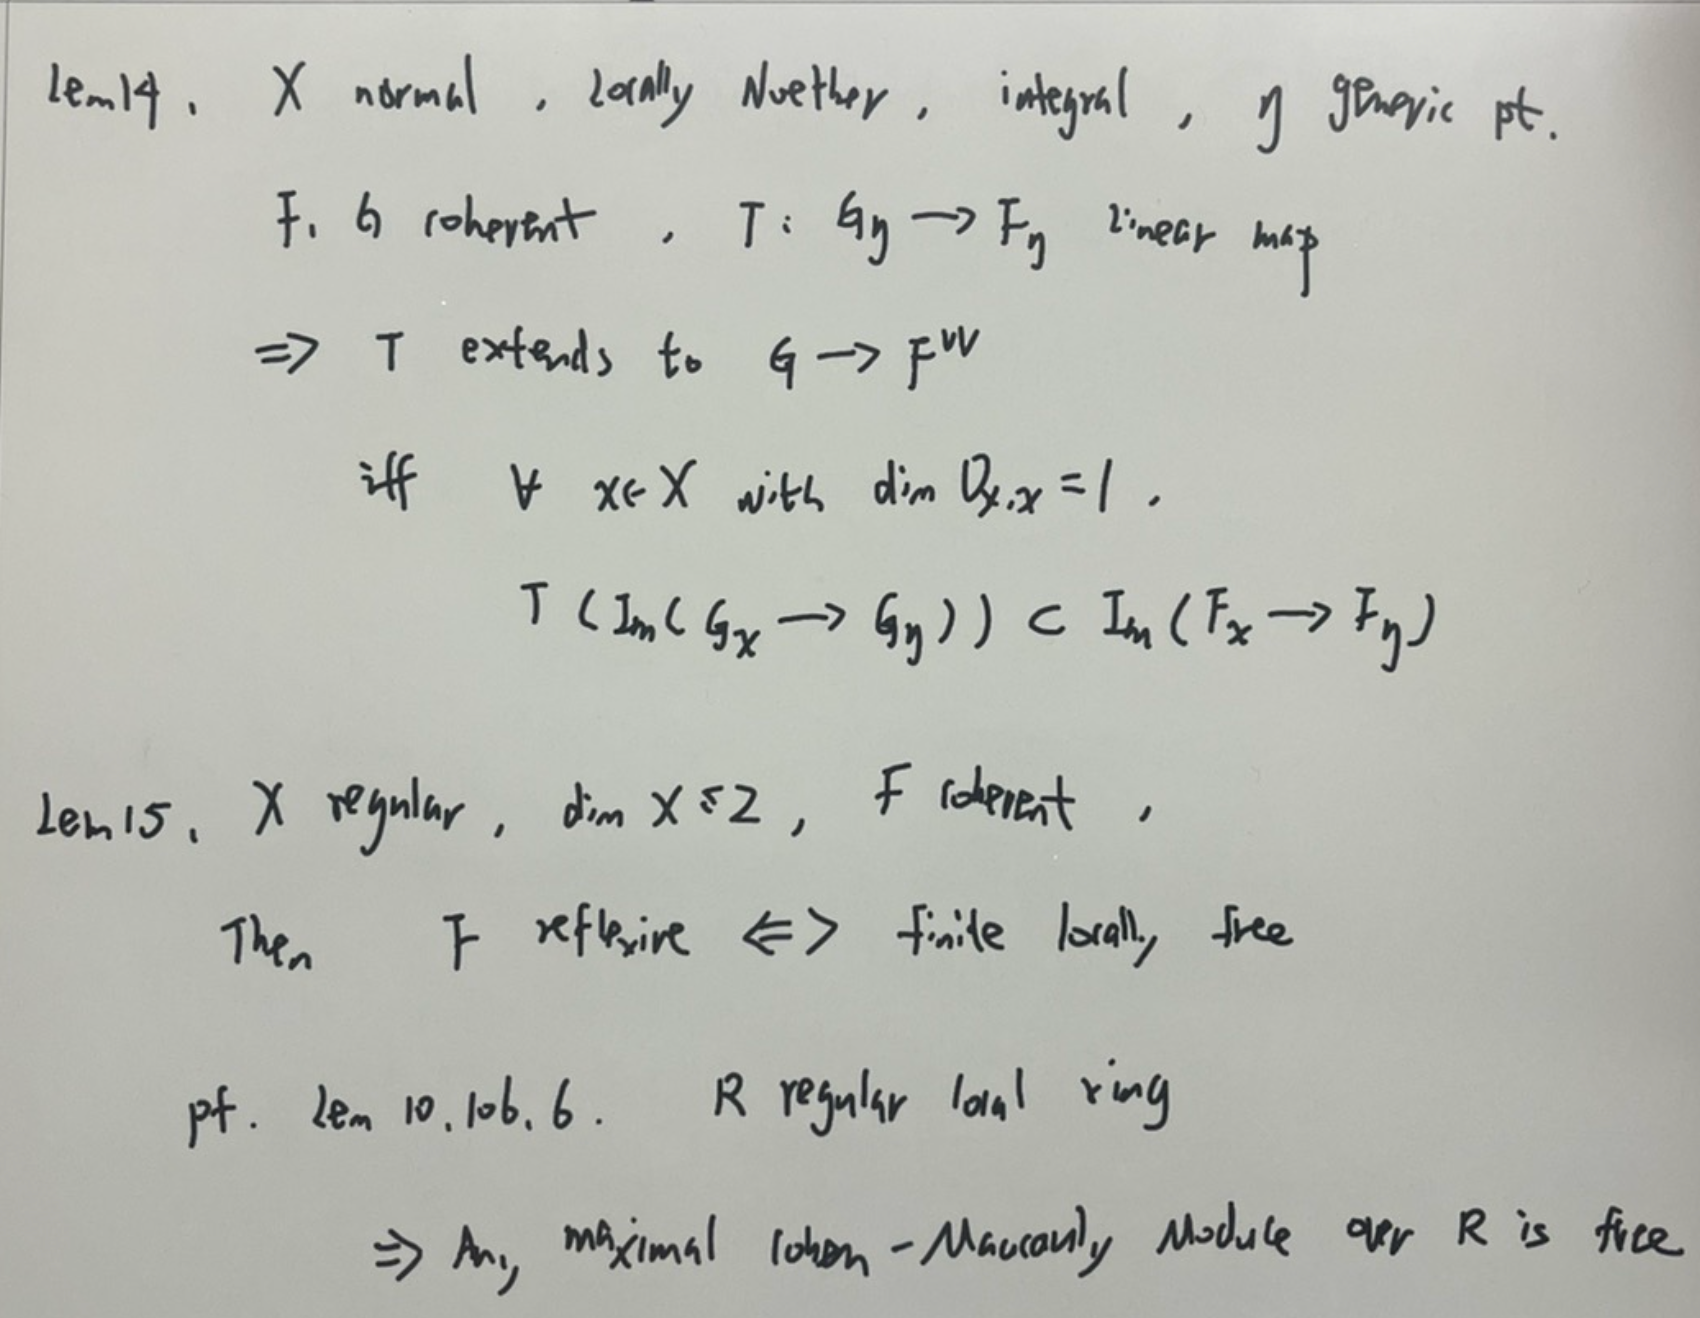 Lem 14. X normal, Locally Noether, integral, η generic pt.
F, G coherent, T: Gη → Fη linear map
⇒ T extends to G → F^∨∨
iff ∀ x∈X with dim O_{X,x} = 1,
T(Im(Gx → Gη)) ⊂ Im(Fx → Fη)
Lem 15. X regular, dim X ≤ 2, F coherent,
Then F reflexive ⇔ finite locally free
pf. Lem 10.106.6. R regular local ring
⇒ Any maximal Cohen-Macaulay Module over R is free